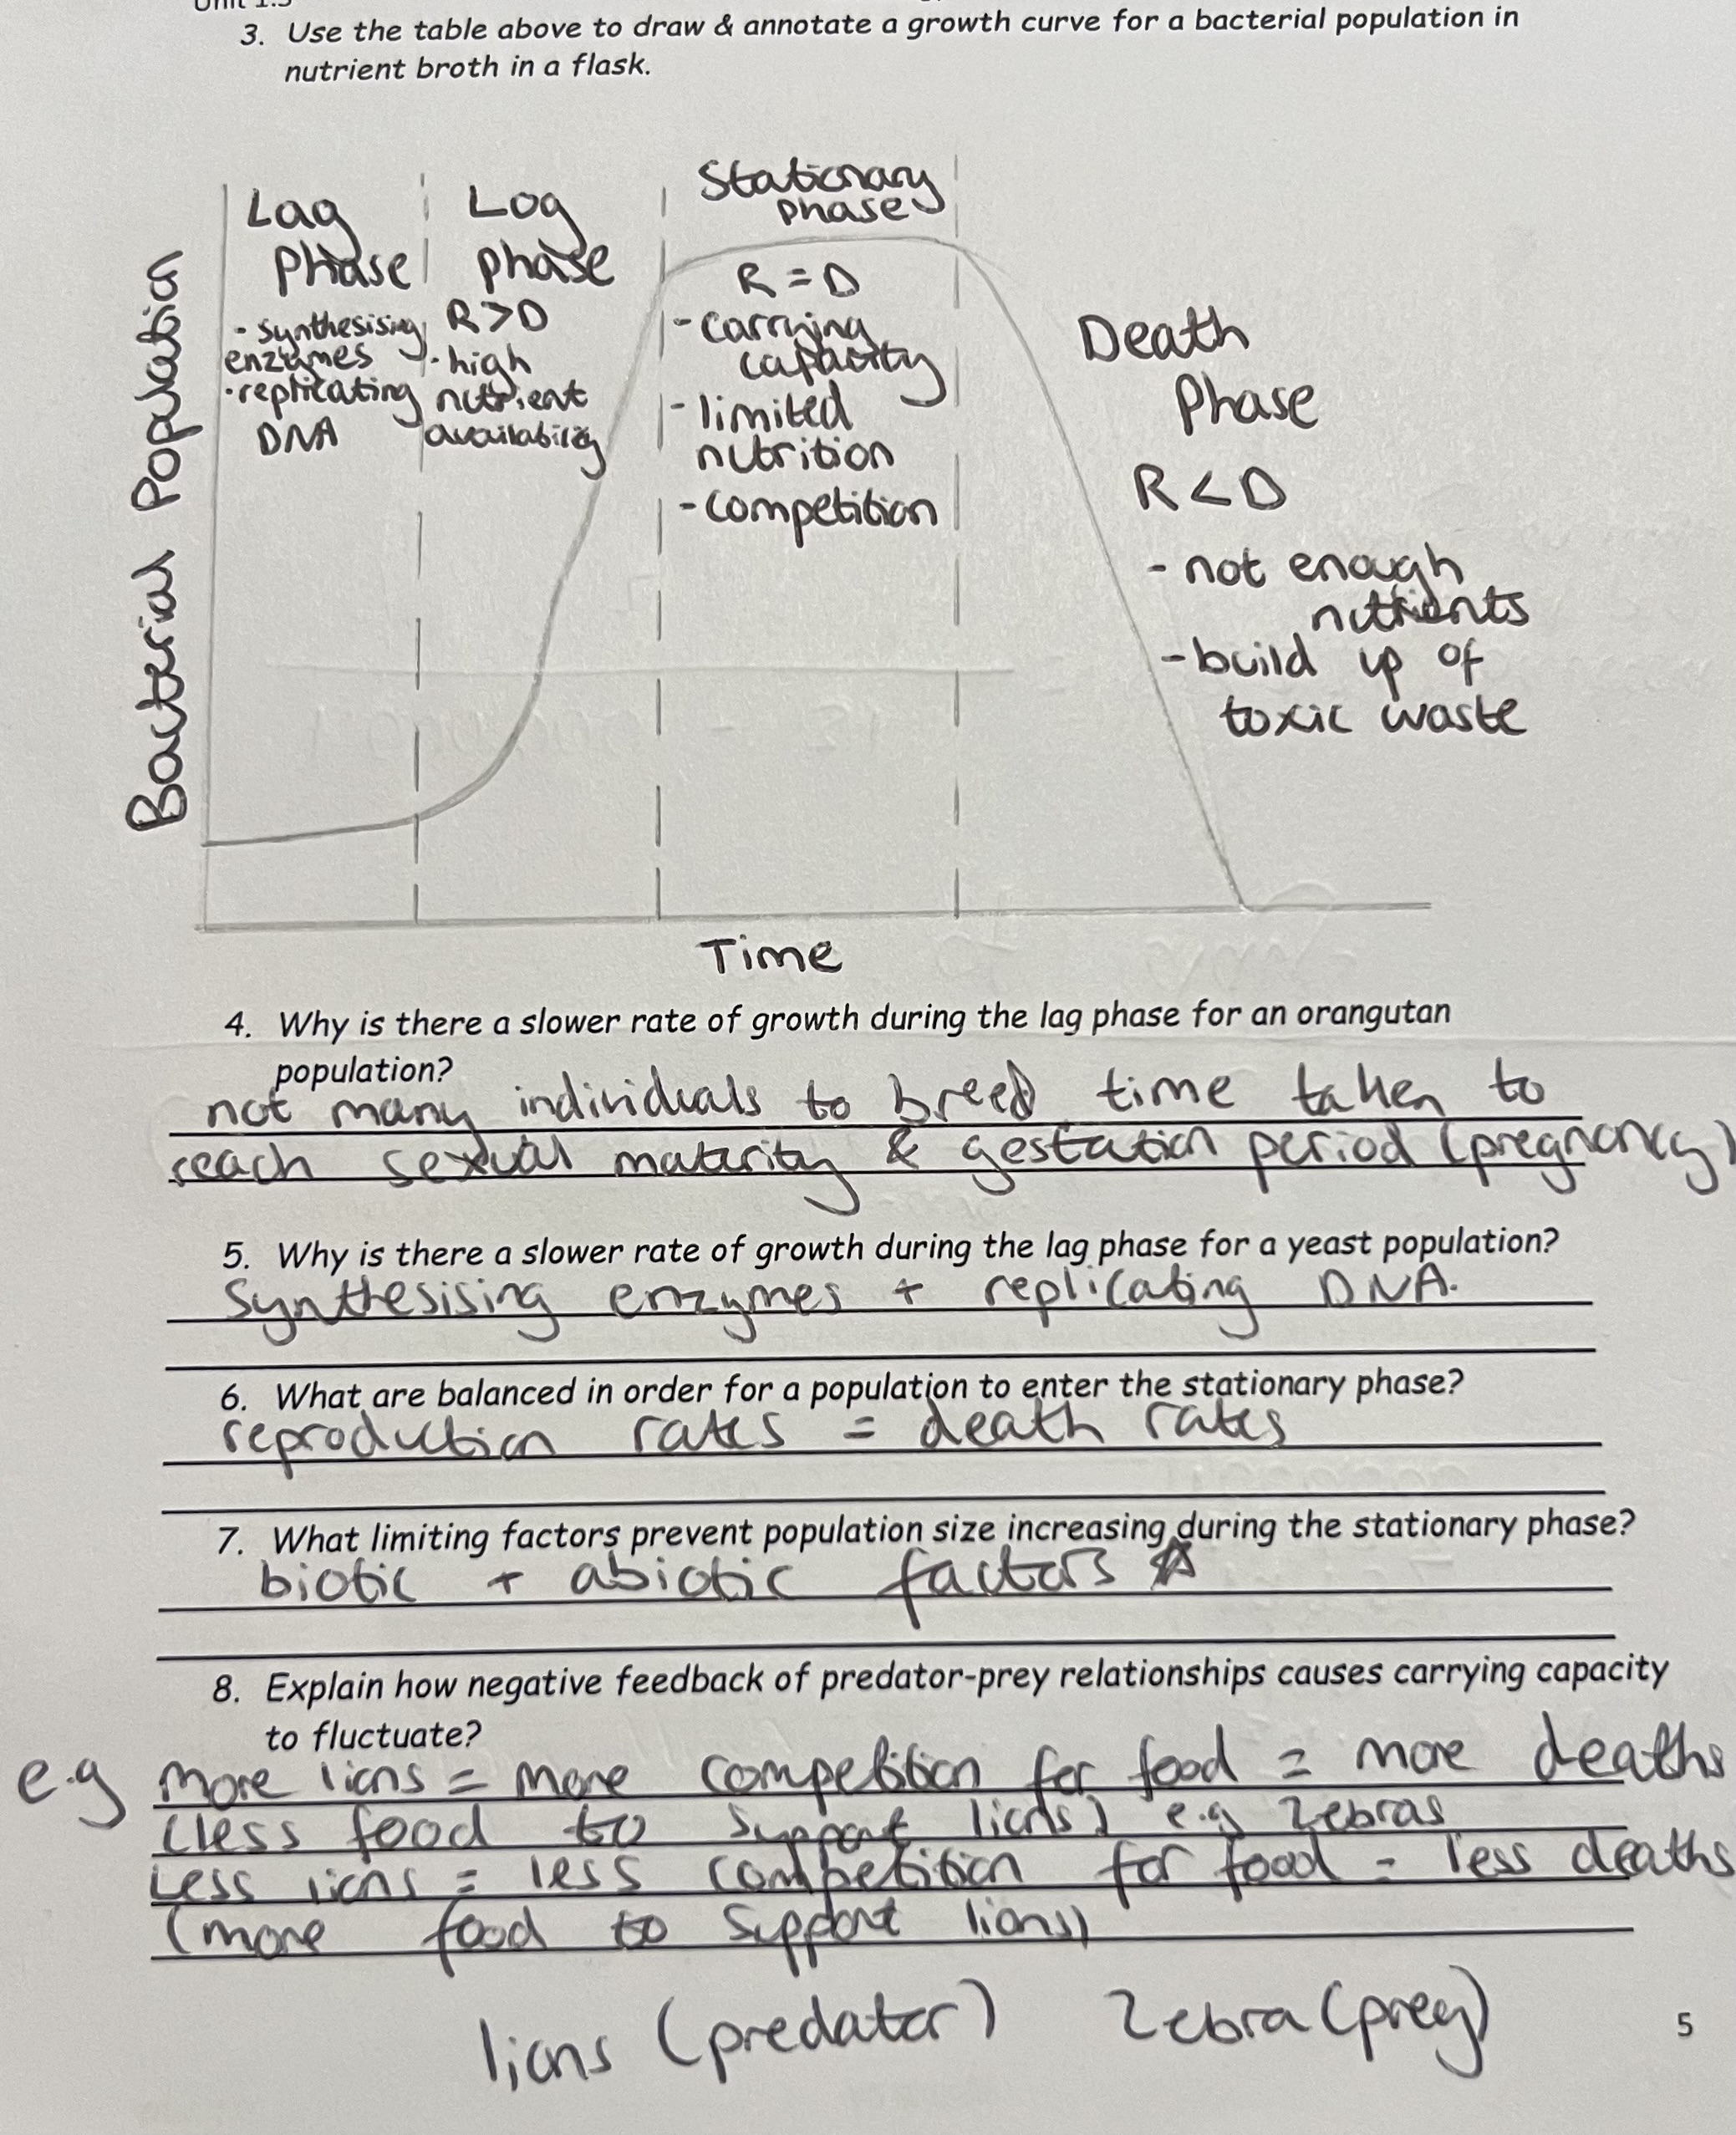 Unit 1.5
3. Use the table above to draw & annotate a growth curve for a bacterial population in
nutrient broth in a flask.
Bacterial Population
Lag
phase
- synthesising
enzymes
- replicating
DNA
Log
phase
R > D
- high
nutrient
availability
Stationary
phase
R = D
- carrying
capacity
- limited
nutrition
- competition
Death
Phase
R < D
- not enough
nutrients
- build up of
toxic waste
Time
4. Why is there a slower rate of growth during the lag phase for an orangutan
population?
not many individuals to breed time taken to
reach sexual maturity & gestation period (pregnancy)
5. Why is there a slower rate of growth during the lag phase for a yeast population?
Synthesising enzymes + replicating DNA.
6. What are balanced in order for a population to enter the stationary phase?
reproduction rates = death rates
7. What limiting factors prevent population size increasing during the stationary phase?
biotic + abiotic factors ☆
8. Explain how negative feedback of predator-prey relationships causes carrying capacity
to fluctuate?
e.g more lions = more competition for food = more deaths
(less food to support lions) e.g zebras
Less lions = less competition for food = less deaths
(more food to support lions)
lions (predator) Zebra (prey)
5